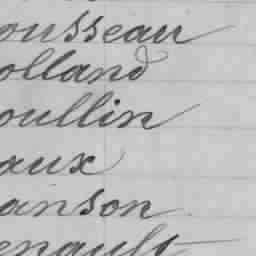 ousseau
olland
oullin
aux
anson
enault